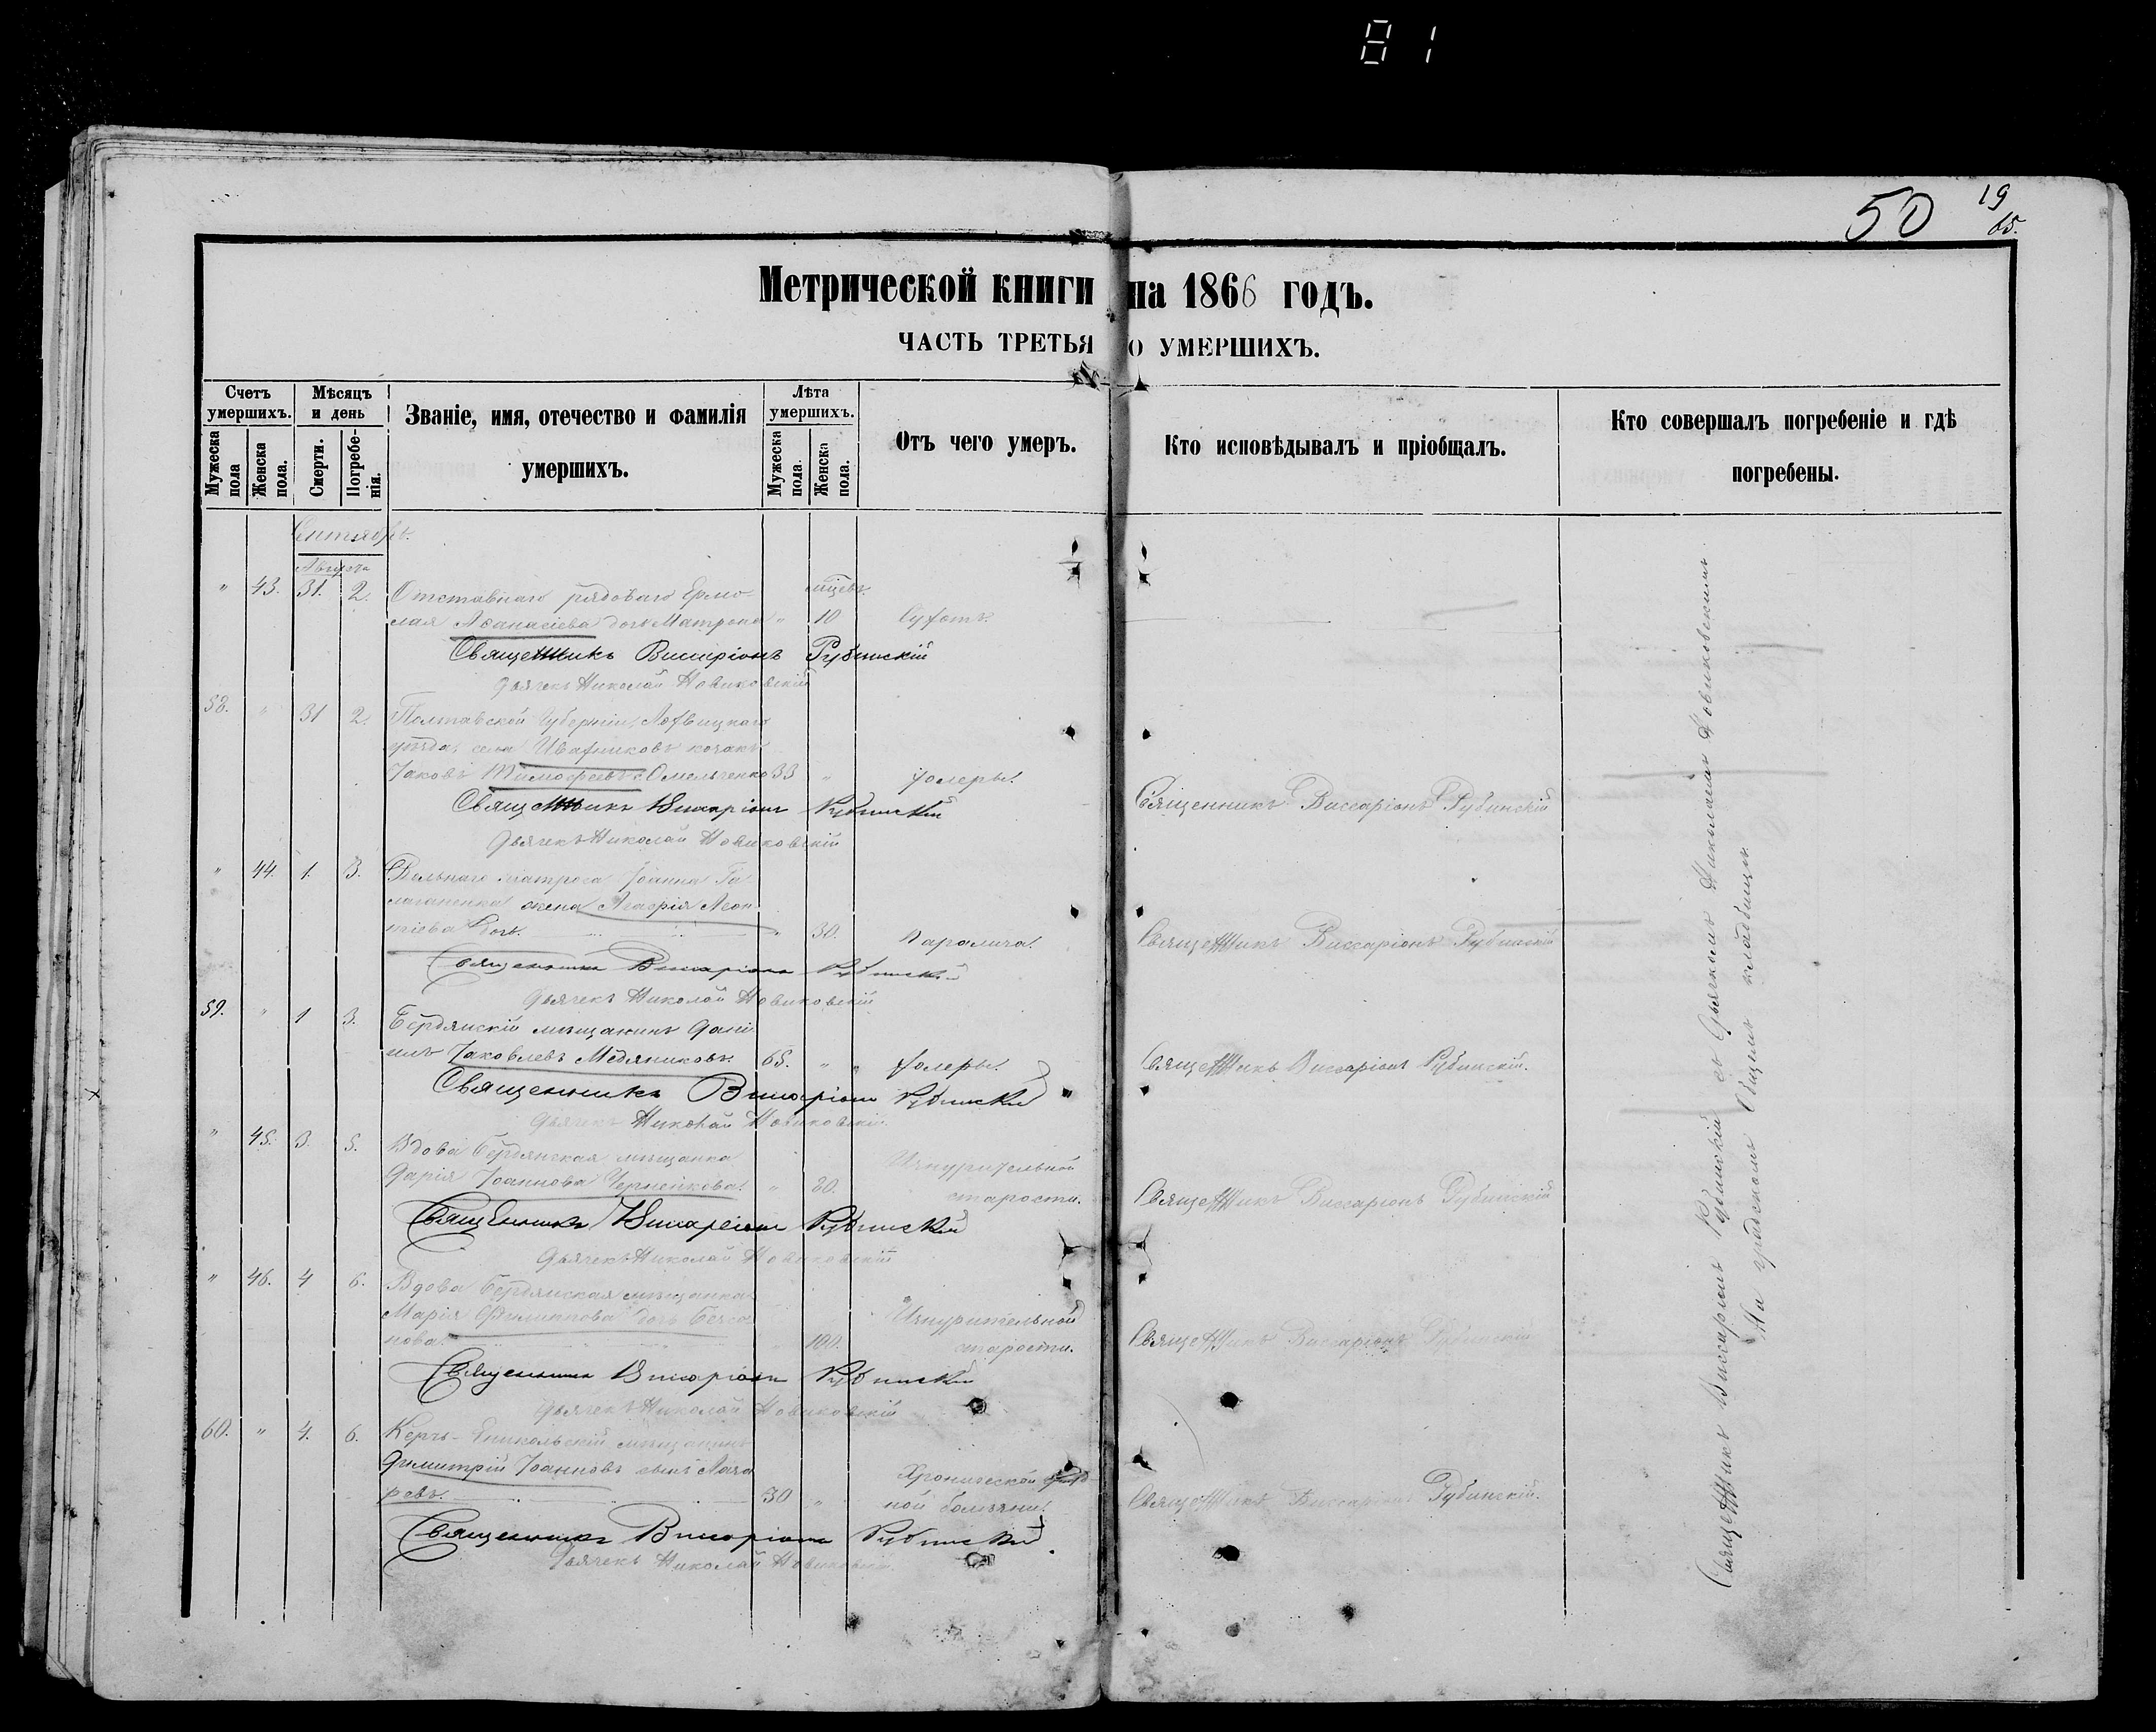 81
50
19
65.
Метрической книги на 1866 годъ.
ЧАСТЬ ТРЕТЬЯ О УМЕРШИХЪ.
Счетъ умершихъ.
Мужеска пола
Женска пола.
Мѣсяцъ и день
Смерти.
Погребенія.
Званіе, имя, отечество и фамилія умершихъ.
Лѣта умершихъ.
Мужеска пола.
Женска пола.
Отъ чего умеръ.
Кто исповѣдывалъ и пріобщалъ.
Кто совершалъ погребеніе и гдѣ погребены.
Сентябрь.
Августа
" 43. 31. 2. Отставнаго рядоваго Ермо-
лая Аѳанасіева дочь Матрона " 10
Священникъ Виссаріонъ Рубинскій
Дьячекъ Николай Новиковскій
58. " 31 2. Полтавской Губерніи, Лохвицкаго
уѣзда, села козакъ
Іаковъ Тимофеевъ Омельченко 33 " холеры. Священникъ Виссаріонъ Рубинскій
Священникъ Виссаріонъ Рубинскій
Дьячекъ Николай Новиковскій
" 44. 1. 3. Вольнаго матроса Іоанна Га-
жена Агафія Леон-
тіева дочь. " 30. Паралича. Священникъ Виссаріонъ Рубинскій
Священникъ Виссаріонъ Рубинскій
Дьячекъ Николай Новиковскій
59. " 1 3. Бердянскій мѣщанинъ Дані-
илъ Іаковлевъ Медяниковъ. 65. " холеры. Священникъ Виссаріонъ Рубинскій.
Священникъ Виссаріонъ Рубинскій
Дьячекъ Николай Новиковскій.
" 45. 3. 5. Вдова Бердянская мѣщанка Изнурительной
Дарія Іоаннова " 80. старости. Священникъ Виссаріонъ Рубинскій
Священникъ Виссаріонъ Рубинскій
Дьячекъ Николай Новиковскій
" 46. 4 6. Вдова Бердянская мѣщанка
Марія Филиппова дочь Изнурительной
нова. " 100. старости. Священникъ Виссаріонъ Рубинскій
Священникъ Виссаріонъ Рубинскій
Дьячекъ Николай Новиковскій
60. " 4. 6. Керчь-Еникольскій мѣщанинъ
Димитрій Іоанновъ сынъ Хронической
ревъ. 30 " ной болѣзни. Священникъ Виссаріонъ Рубинскій.
Священникъ Виссаріонъ Рубинскій.
Дьячекъ Николай Новиковскій.
Священникъ Виссаріонъ Рубинскій съ Дьячкомъ Николаемъ Новиковскимъ
На градскомъ Общемъ кладбищѣ.